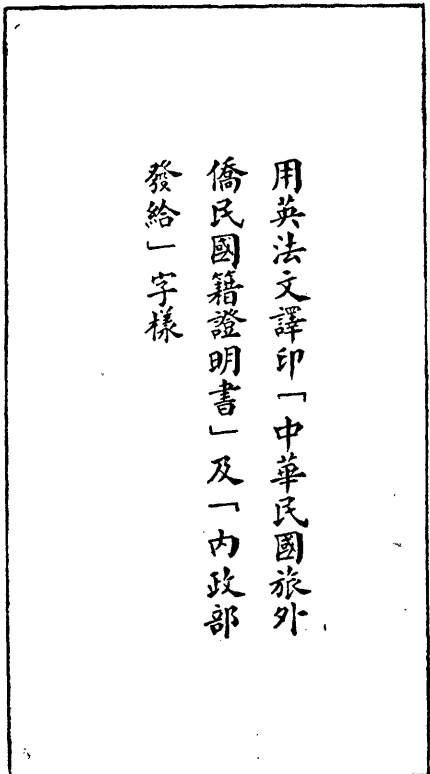 用英法文譯印「中華民國旅外
僑民國籍證明書」及「內政部
發給」字樣